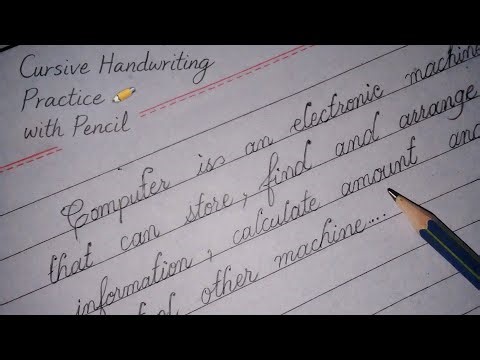 Cursive Handwriting
Practice
with Pencil
Computer is an electronic machine
that can store, find and arrange
information, calculate amount and
other machine....